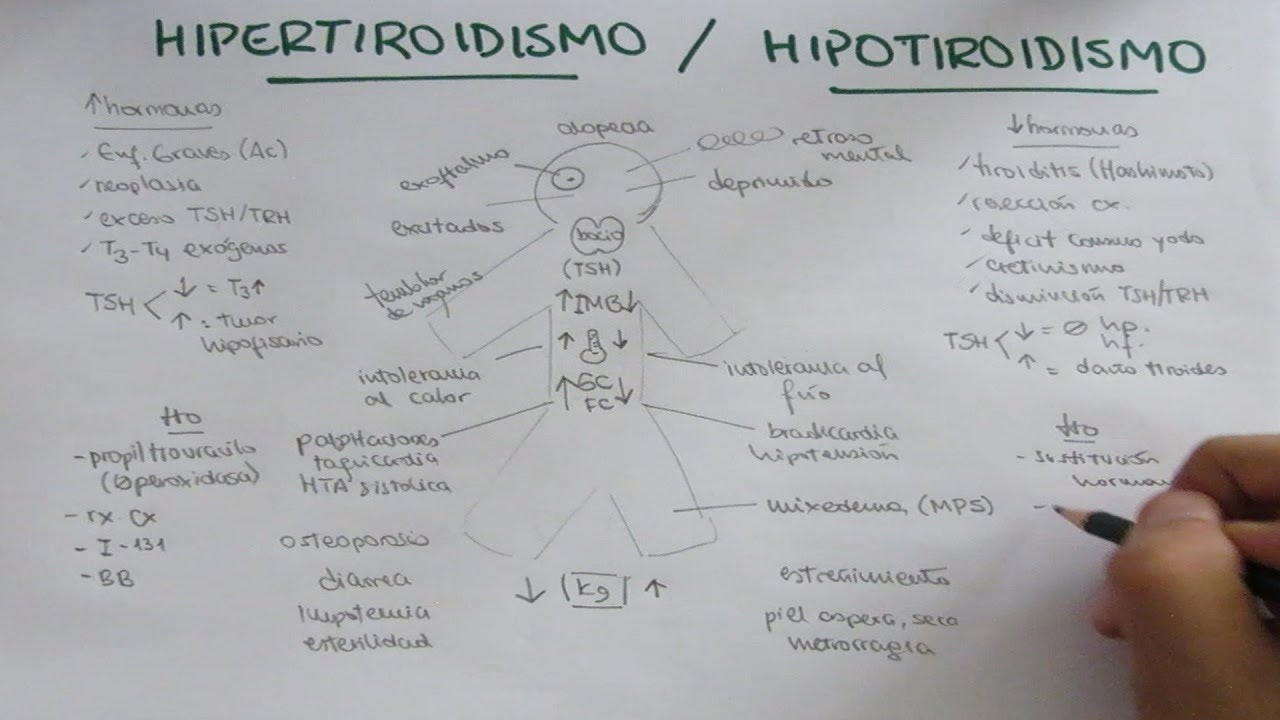 HIPERTIROIDISMO / HIPOTIROIDISMO
↑ hormonas
Enf. Graves (Ac)
neoplasia
exceso TSH/TRH
T3-T4 exógenas
TSH < ↓ = T3↑
↑ = tumor
hipofisario
tto
- propiltiouracilo
(∅ peroxidasa)
- rx. Cx
- I-131
- BB
alopecia
exoftalmo
exitados
temblor
de manos
intolerancia
al calor
palpitaciones
taquicardia
HTA sistolica
osteoporosis
diarrea
impotencia
esterilidad
bocio
(TSH)
↑ IMB ↓
↑ ↓
↑ GC
FC ↓
↓ (Kg) ↑
retraso
mental
deprimido
intolerancia al
frío
bradicardia
hipotensión
mixedema, (MPS)
estreñimiento
piel aspera, seca
metrorragia
↓ hormonas
tiroiditis (Hashimoto)
resección cx.
deficit consumo yodo
cretinismo
disminución TSH/TRH
TSH < ↓ = ∅ hp.
hf.
↑ = daño tiroides
tto
- sustitución
hormon
-